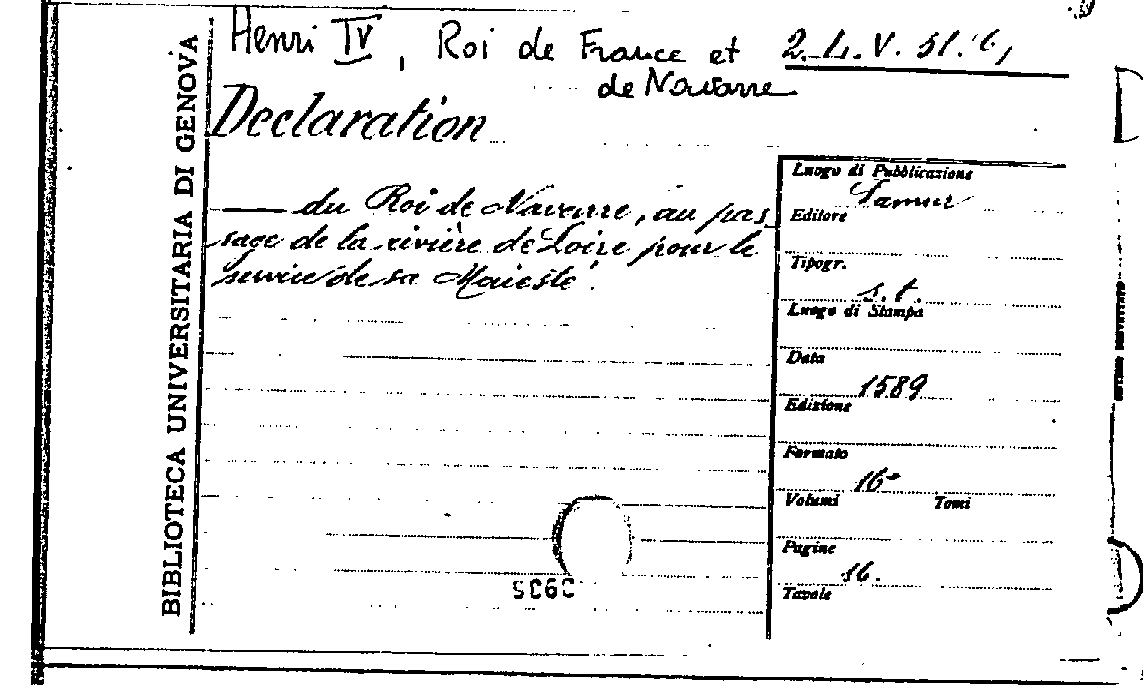 BIBLIOTECA UNIVERSITARIA DI GENOVA
Henri IV, Roi de France et
de Navarre
2. L. V. 51.
Declaration
— du Roi de Navarre, au pas
sage de la rivière de Loire pour le
service de sa Maiesté.
Luogo di Pubblicazione
Editore
Tipogr.
s. t.
Luogo di Stampa
Data
1589
Edizione
Formato
16º
Volumi Tomi
Pagine
16.
Tavole